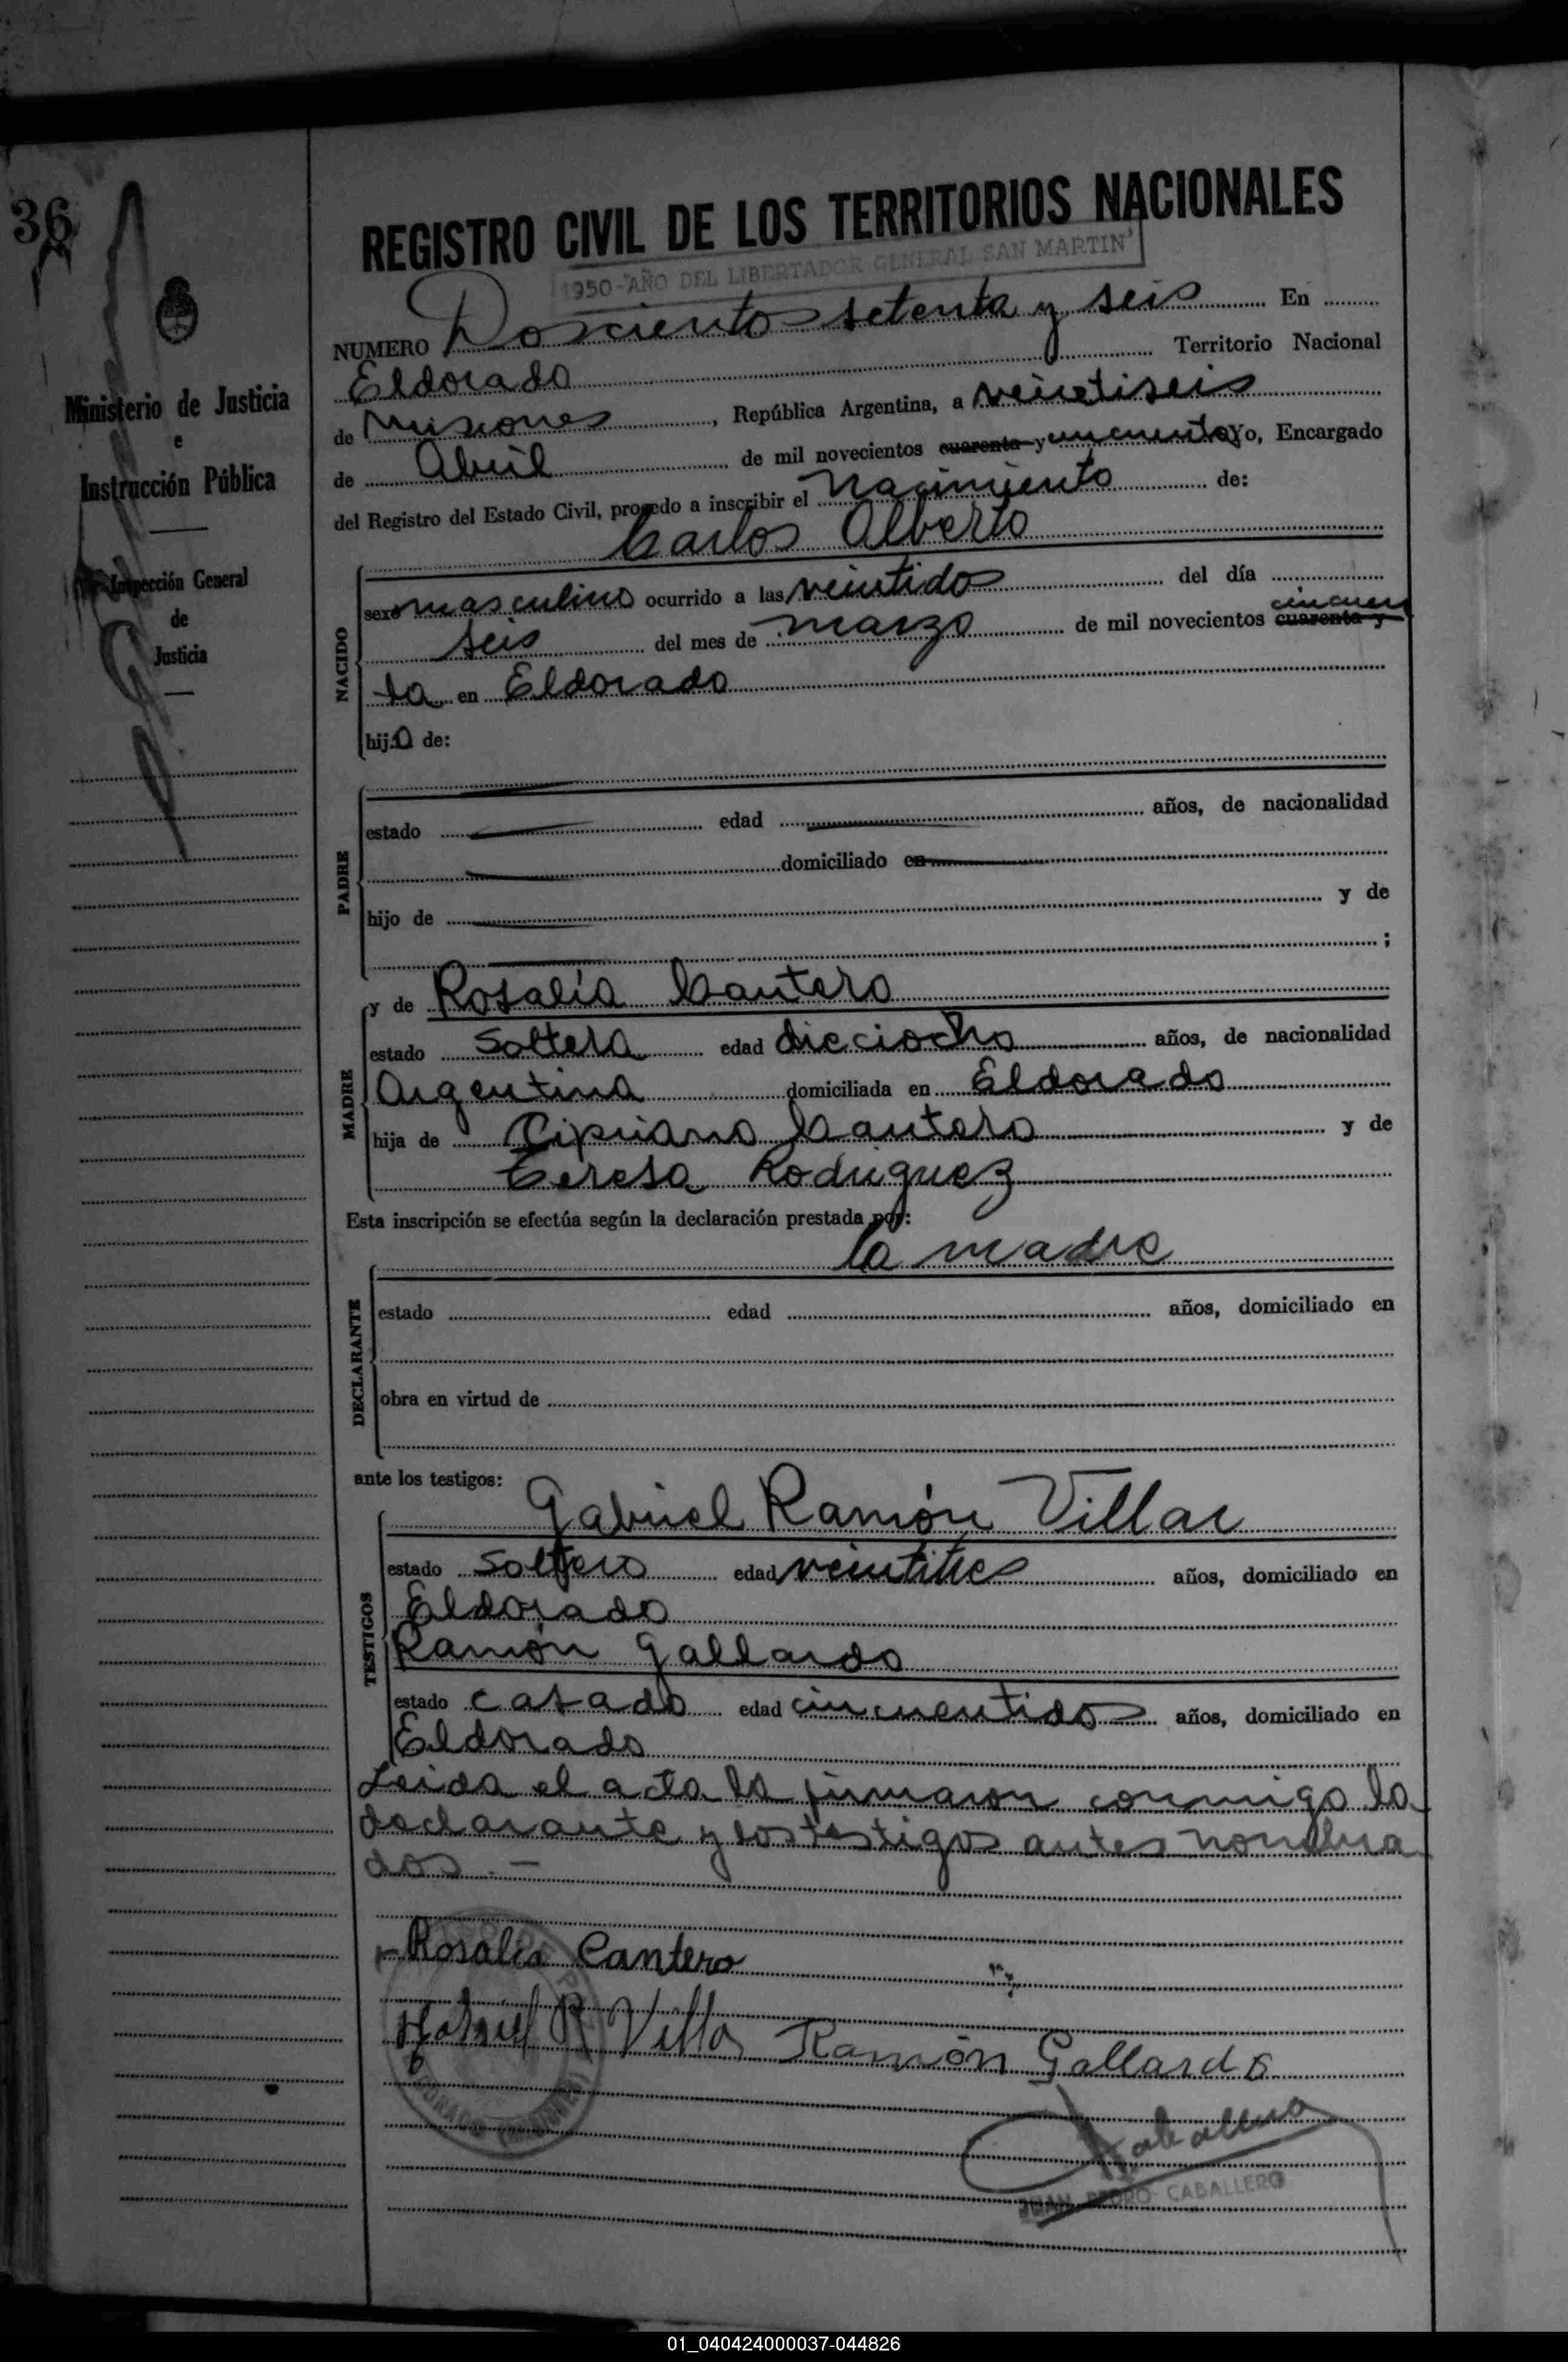 36
Ministerio de Justicia
e
Instrucción Pública
Inspección General
de
Justicia
REGISTRO CIVIL DE LOS TERRITORIOS NACIONALES
1950-"AÑO DEL LIBERTADOR GENERAL SAN MARTIN"
NUMERO Dosciento setenta y seis En
Eldorado Territorio Nacional
de Misiones, República Argentina, a veintiseis
de Abril de mil novecientos cuarenta y cincuenta Yo, Encargado
del Registro del Estado Civil, procedo a inscribir el nacimiento de:
Carlos Alberto
NACIDO
sexo masculino ocurrido a las veintidos del día
seis del mes de marzo de mil novecientos cuarenta y cincuen
ta en Eldorado
hijo de:
PADRE
estado edad años, de nacionalidad
domiciliado en
hijo de y de
;
MADRE
y de Rosalía Cantero
estado soltera edad dieciocho años, de nacionalidad
Argentina domiciliada en Eldorado
hija de Cipriano Cantero y de
Teresa Rodriguez
Esta inscripción se efectúa según la declaración prestada por:
la madre
DECLARANTE
estado edad años, domiciliado en
obra en virtud de
ante los testigos:
TESTIGOS
Gabriel Ramón Villar
estado soltero edad veintitres años, domiciliado en
Eldorado
Ramón Gallardo
estado casado edad cincuentidos años, domiciliado en
Eldorado
Leida el acta la firmaron conmigo la
declarante y los testigos antes nombra
dos.-
Rosalia Cantero
Gabriel R Villar Ramón Gallardo
Caballero
JUAN PEDRO CABALLERO
01_040424000037-044826